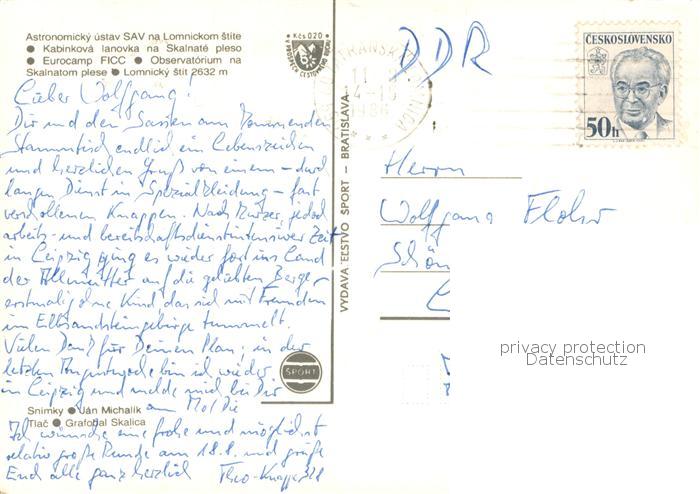 Astronomický ústav SAV na Lomnickom štíte
● Kabinková lanovka na Skalnaté pleso
● Eurocamp FICC ● Observatórium na
Skalnatom plese ● Lomnický štít 2632 m
Kčs 0,20
Lieber Wolfgang!
Dir und den Sassen am kommenden
Stammtisch endlich ein Lebenszeichen
und herzlichen Gruß von einem – durch
langen Dienst in Spezialkleidung – fast
verschollenen Knappen. Nach kurzer, jedoch
arbeits- und bereitschaftsdienstintensiver Zeit
in Leipzig ging es wieder fort ins Land
der Allmutter auf die geliebten Berge –
erstmalig ohne Kind das sich mit Freunden
im Elbsandsteingebirge tummelt.
Vielen Dank für Deinen Plan; in der
letzten Augustwoche bin ich wieder
in Leipzig und melde mich bei Dir
am
Snímky ● Ján Michalík
Tlač ● Grafobal Skalica
Ich wünsche eine frohe und möglichst
relativ große Runde am 18.8. und grüße
Euch alle ganz herzlich Theo-Knappe 328
VYDAVATEĽSTVO ŠPORT – BRATISLAVA
ŠPORT
DDR
11
14-1
1986
ČESKOSLOVENSKO
50h
Herrn
Wolfgang Flohr
Schön
privacy protection
Datenschutz